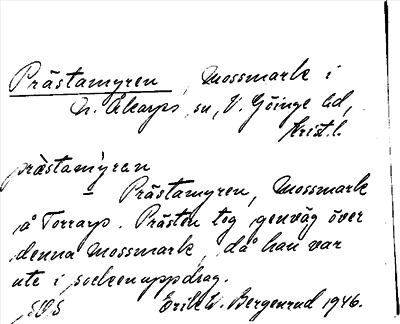 Prästamyren, Mossmark i
N. Åkarps sn, V. Göinge hd,
Krist. l.
præ̀stamýran
Prästamyren, Mossmark
å Torrarp. Prästen tog genväg över
denna mossmark, då han var
ute i sockenuppdrag.
Erik W. Bergenrud 1946.